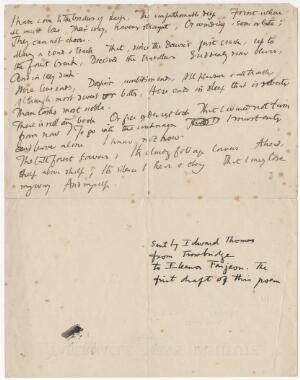 I have come to the borders of sleep, The unfathomable deep Forest where
All must lose Their way, however straight, Or winding, soon or late;
They can not choose.
Many a road & track That, since the dawn's first crack, up to
the forest brink, Deceived the travellers Suddenly now blurs,
And in they sink.
Here love ends, Despair, ambition ends, All pleasure & all trouble,
Although most sweet or bitter, Here ends in sleep that is sweeter
Than tasks most noble.
There is not any book Or face of dearest look That I would not turn
from now To go into the unknown I must enter
and leave alone I know not how
The tall forest towers; Its cloudy foliage lowers Ahead,
shelf above shelf; Its silence I hear & obey That I may lose
my way And myself
Sent by Edward Thomas
from Trowbridge
to Eleanor Farjeon. The
first draft of this poem